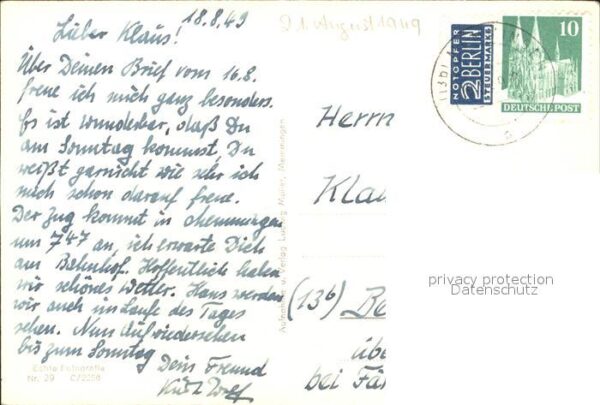 18.8.49
Lieber Klaus!
Über Deinen Brief vom 16.8.
freue ich mich ganz besonders.
Es ist wunderbar, daß Du
am Sonntag kommst. Du
weißt garnicht wie sehr ich
mich schon darauf freue.
Der Zug kommt in Memmingen
um 7 47 an, ich erwarte Dich
am Bahnhof. Hoffentlich haben
wir schönes Wetter. Hans werden
wir auch im Laufe des Tages
sehen. Nun Aufwiedersehen
bis zum Sonntag
Dein Freund
Wolf
Echte Fotografie
Nr. 29 C/2258
Aufnahme u. Verlag Ludwig Müller, Memmingen
21. August 1949
NOTOPFER
2 BERLIN
STEUERMARKE
10
DEUTSCHE POST
Herrn
Kla
(13b) Be
übe
bei Fä
privacy protection
Datenschutz